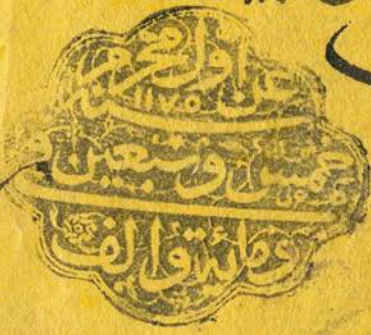 عن اول محرم
سنة ١١٧٥
خمس وسبعين
ومائة والف